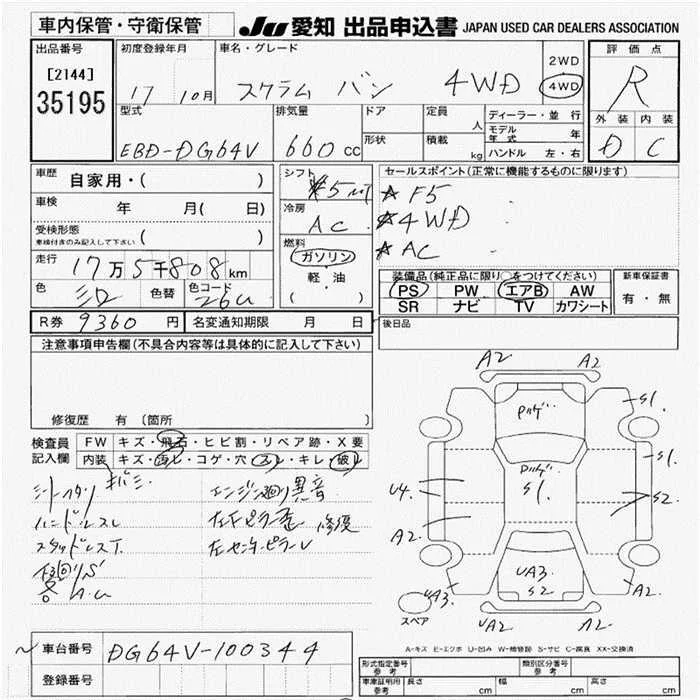 車内保管・守衛保管 JU 愛知 出品申込書 JAPAN USED CAR DEALERS ASSOCIATION
出品番号 初度登録年月 車名・グレード 評価点
[2144] 2WD
35195 17 10月 スクラム バン 4WD 4WD R
型式 排気量 ドア 定員 人 ディーラー・並行 外装 内装
モデル年式 年
EBD-DG64V 660 cc 形状 積載 kg ハンドル 左・右 D C
車歴 自家用・( ) シフト 5MT セールスポイント(正常に機能するものに限ります)
☆ F5
車検 年 月( 日) 冷房 AC ☆4WD
受検形態 車検付きのみ記入して下さい ( ) 燃料 ガソリン ☆AC
走行 17万5千808km 軽・油 装備品(純正品に限り○をつけてください) 新車保証書
PS PW エアB AW 有・無
色 色替 色コード 26U ( ) SR ナビ TV カワシート
R券 9360円 名変通知期限 月 日 後日品
注意事項申告欄(不具合内容等は具体的に記入して下さい)
A2 A2
S1.
修復歴 有 〔箇所
検査員 FW キズ・飛石・ヒビ割・リペア跡・X要
記入欄 内装 キズ・汚レ・コゲ・穴・スレ・キレ・破レ
S1.
シートヘタリ キバミ エンジン廻り異音 U4. S1 S2.
ハンドルスレ 左Fピラー歪 修復
スタッドレスT. 左センターピラーU A2.
UA3.
S2
UA3. A2.
スペア UA2 A2.
A-キズ E-エクボ U-凹み W-補修跡 S-サビ C-腐食 XX-交換済
車台番号 DG64V-100344
登録番号
形式指定番号 参考 類別区分番号 参考
車庫証明用 参考 長さ cm 幅 cm 高さ cm